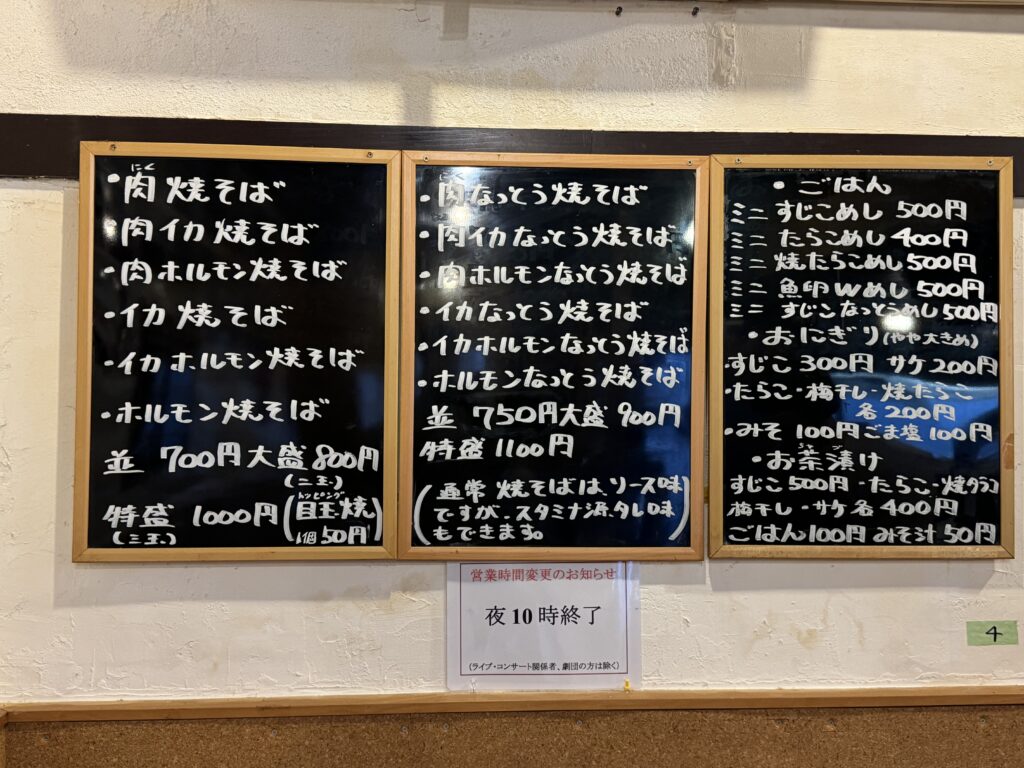 ・肉焼そば
にく
・肉イカ焼そば
・肉ホルモン焼そば
・イカ焼そば
・イカホルモン焼そば
・ホルモン焼そば
並 700円 大盛 800円
(二玉)
特盛 1000円
(三玉)
(トッピング
目玉焼
1個 50円)
・肉なっとう焼そば
・肉イカなっとう焼そば
・肉ホルモンなっとう焼そば
・イカなっとう焼そば
・イカホルモンなっとう焼そば
・ホルモンなっとう焼そば
並 750円 大盛 900円
特盛 1100円
(通常 焼そばは、ソース味
ですが、スタミナ源タレ味
もできます。)
・ごはん
ミニ すじこめし 500円
ミニ たらこめし 400円
ミニ 焼たらこめし 500円
ミニ 魚卵Wめし 500円
ミニ すじこなっとうめし 500円
・おにぎり(やや大きめ)
・すじこ 300円 サケ 200円
・たらこ・梅干し・焼たらこ
各 200円
・みそ 100円 ごま塩 100円
・お茶漬け
すじこ 500円 ・たらこ・焼タラコ
梅干し・サケ 各 400円
ごはん 100円 みそ汁 50円
営業時間変更のお知らせ
夜 10 時終了
(ライブ・コンサート関係者、劇団の方は除く)
4